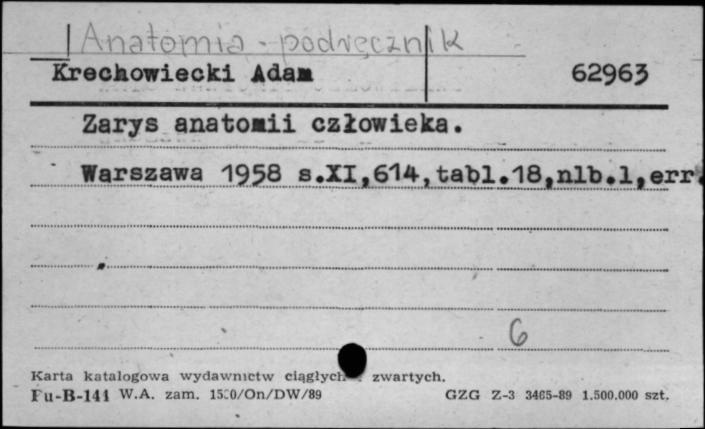 Anatomia - podręcznik
Krechowiecki Adam 62963
Zarys anatomii człowieka.
Warszawa 1958 s.XI,614,tabl.18,nlb.1,err.
6
Karta katalogowa wydawnictw ciągłych zwartych.
Pu-B-141 W.A. zam. /On/DW/89 GZG Z-3 3465-89 1.500.000 szt.